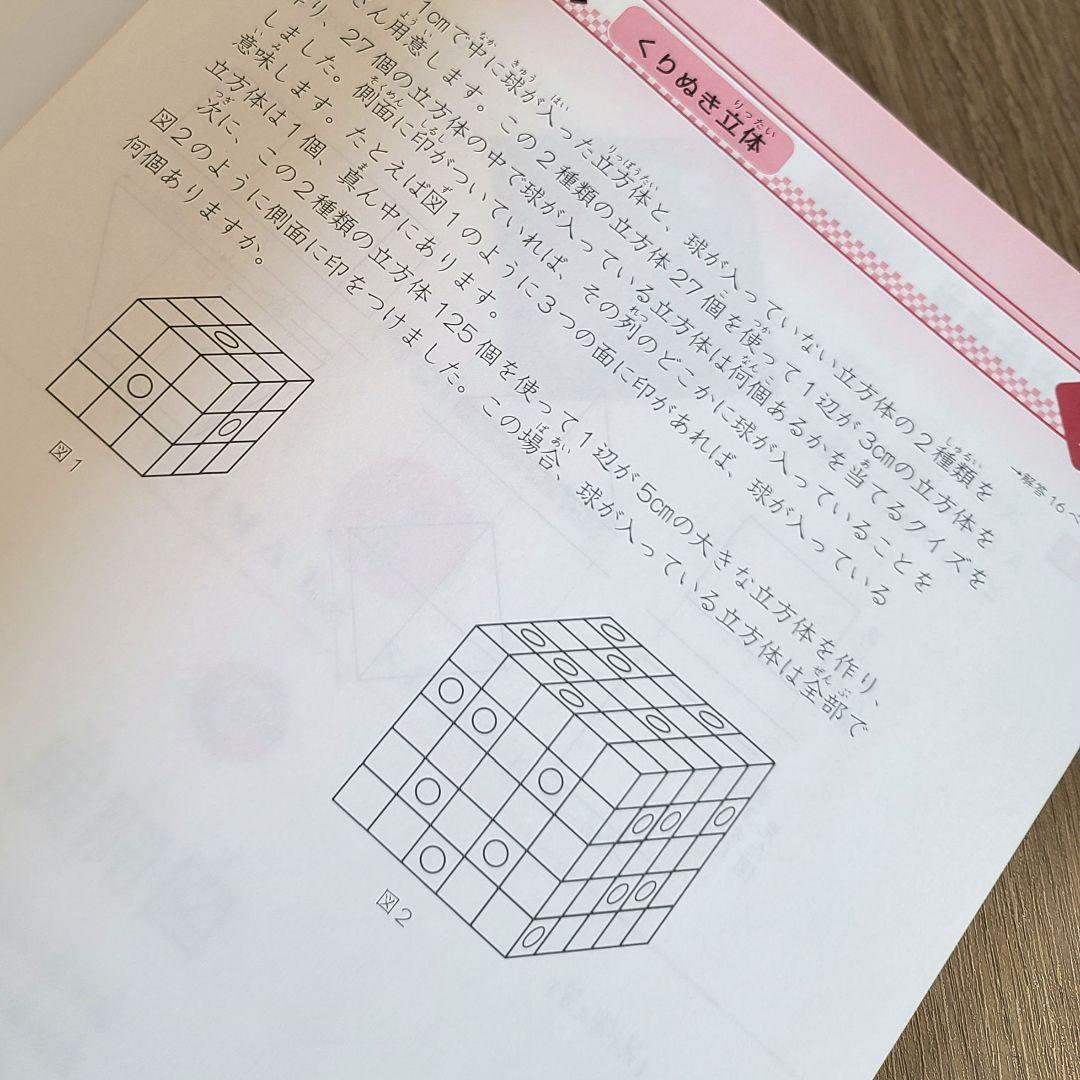 くりぬき立体
→解答16
1cmで中に球が入った立方体と、球が入っていない立方体の2種類を
さん用意します。この2種類の立方体27個を使って1辺が3cmの立方体を
作り、27個の立方体の中で球が入っている立方体は何個あるかを当てるクイズを
しました。側面に印がついていれば、その列のどこかに球が入っていることを
意味します。たとえば図1のように3つの面に印があれば、球が入っている
立方体は1個、真ん中にあります。
次に、この2種類の立方体125個を使って1辺が5cmの大きな立方体を作り、
図2のように側面に印をつけました。この場合、球が入っている立方体は全部で
何個ありますか。
図1
図2